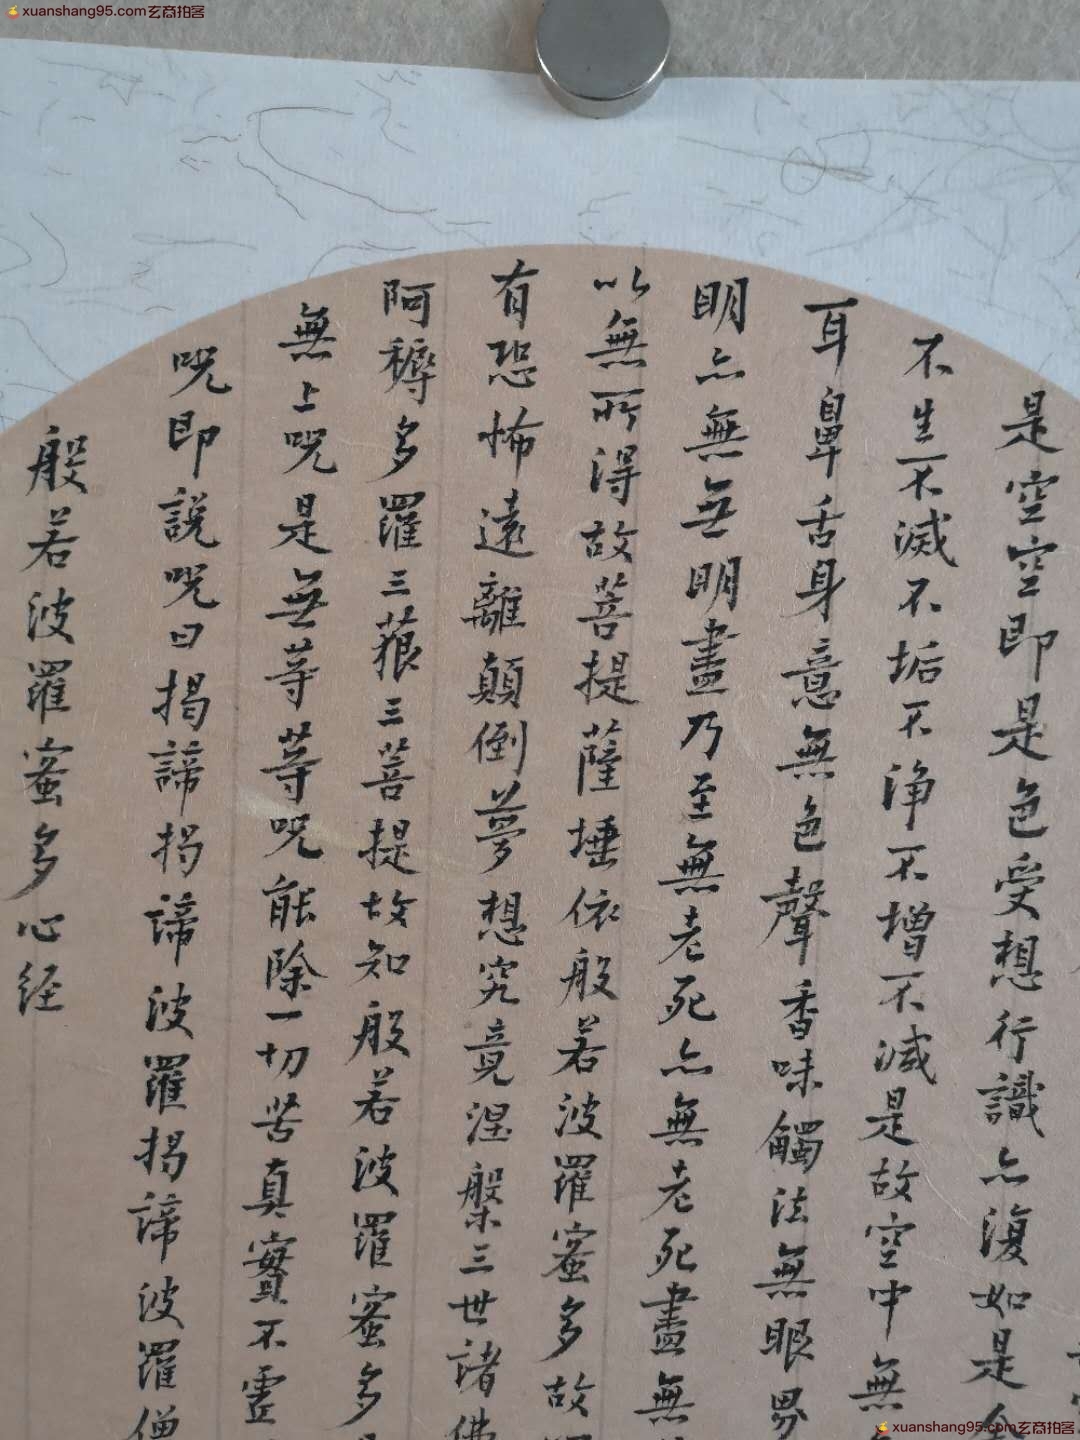 xuanshang95.com玄商拍客
是空空即是色受想行識亦復如是
不生不滅不垢不淨不增不減是故空中無
耳鼻舌身意無色聲香味觸法無眼界
明亦無無明盡乃至無老死亦無老死盡無
以無所得故菩提薩埵依般若波羅蜜多故
有恐怖遠離顛倒夢想究竟涅槃三世諸佛
阿耨多羅三藐三菩提故知般若波羅蜜多
無上咒是無等等咒能除一切苦真實不虛
咒即說咒曰揭諦揭諦波羅揭諦波羅僧
般若波羅蜜多心経
xuanshang95.com玄商拍客